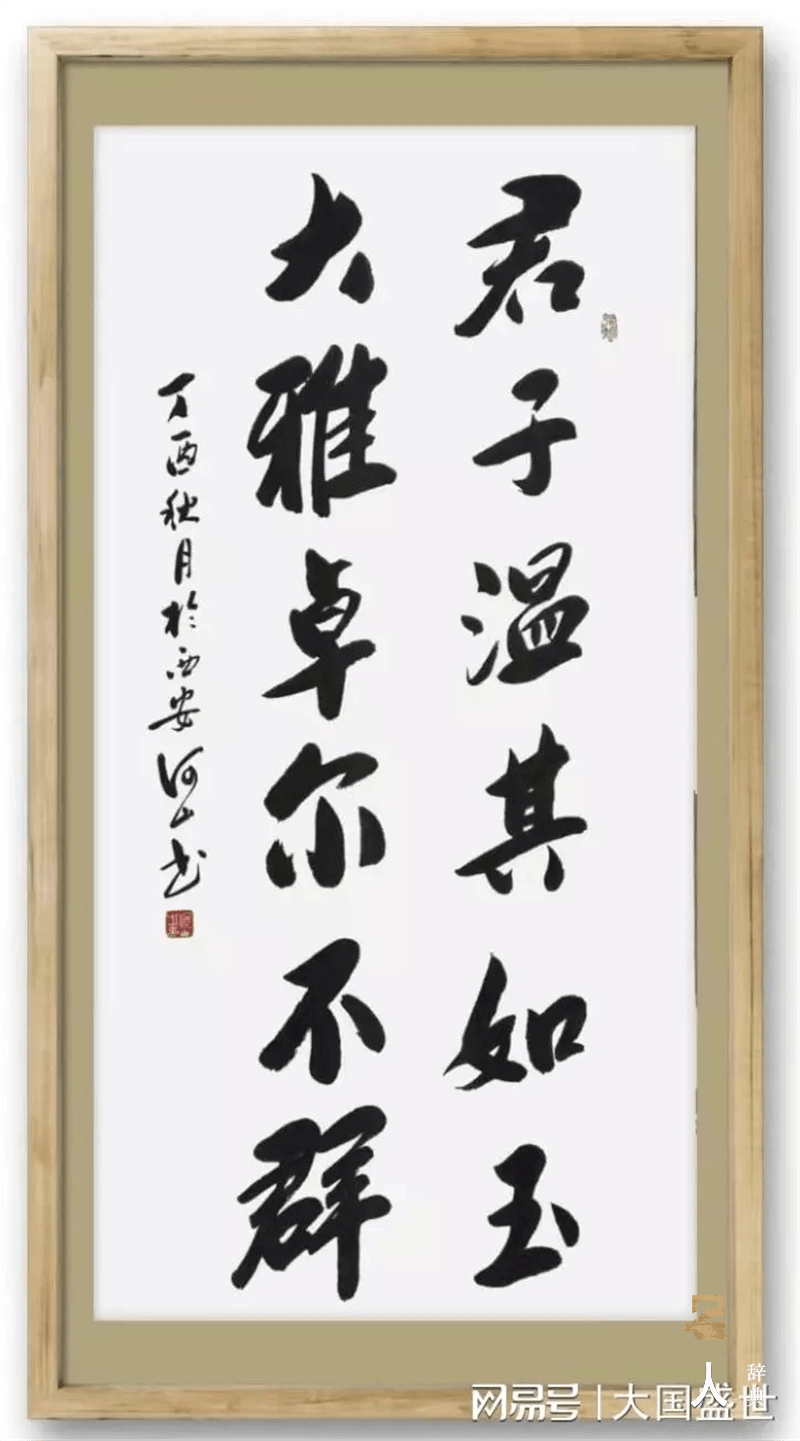 君子温其如玉
大雅卓尔不群
丁酉秋月於西安河山书
名人
辞典
网易号 | 大国盛世